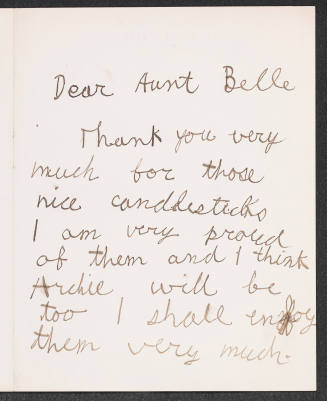 Dear Aunt Belle
Thank you very
much for those
nice candlesticks
I am very proud
of them and I think
Archie will be
too I shall enjoy
them very much.